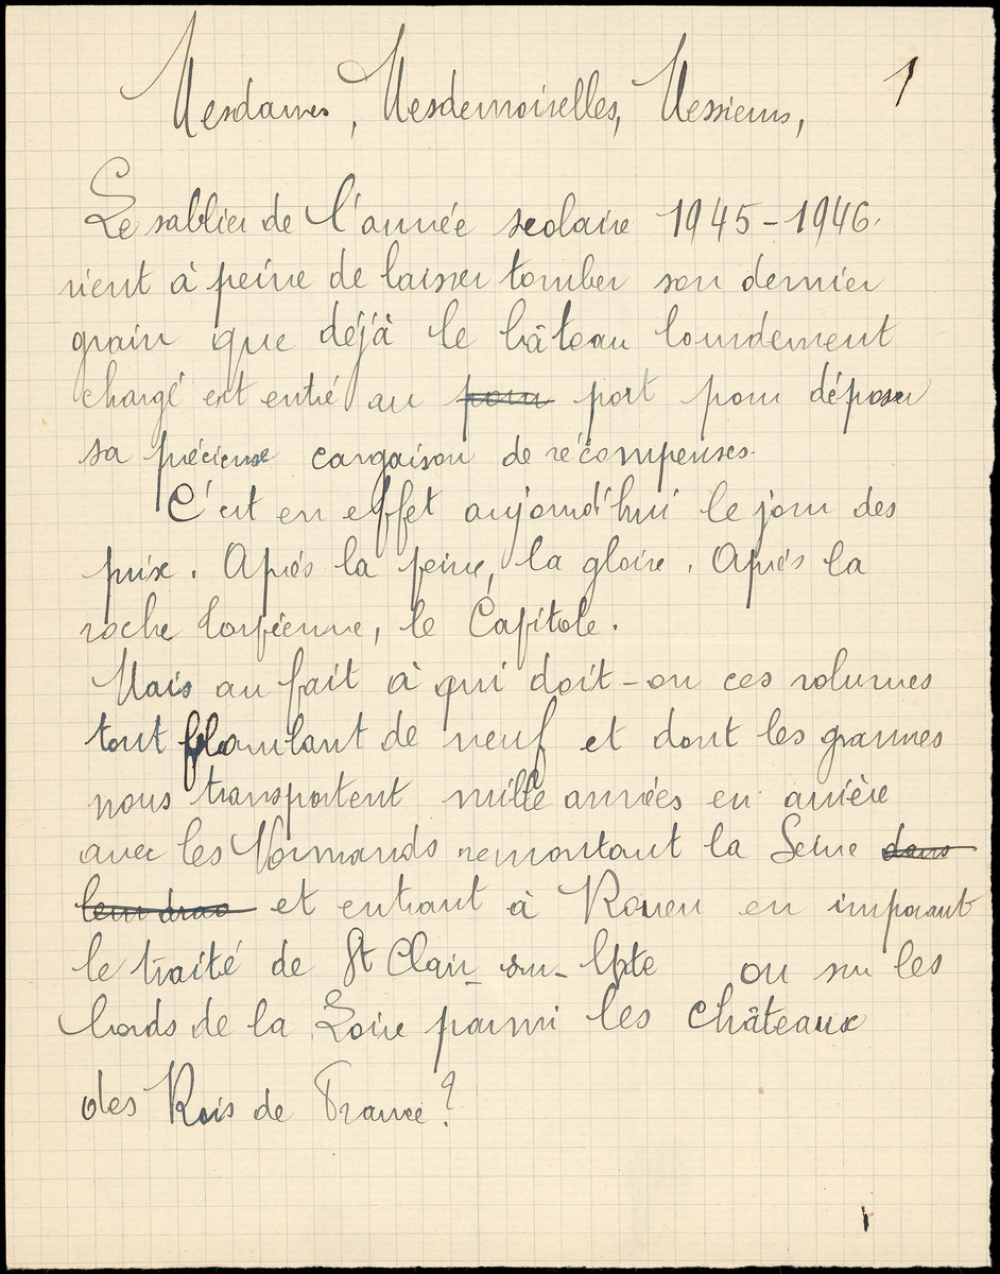 1
Mesdames, Mesdemoiselles, Messieurs,
Le sablier de l'année scolaire 1945-1946.
vient à peine de laisser tomber son dernier
grain que déjà le bâteau lourdement
chargé est entré au pour port pour déposer
sa précieuse cargaison de récompenses.
C'est en effet aujourd'hui le jour des
prix. Après la peine, la gloire. Après la
roche tarpéienne, le Capitole.
Mais au fait à qui doit-on ces volumes
tout flambant de neuf et dont les gravures
nous transportent mille années en arrière
avec les Normands remontant la Seine dans
leur drac et entrant à Rouen en imposant
le traité de St Clair-sur-Epte ou sur les
bords de la Loire parmi les châteaux
des Rois de France ?